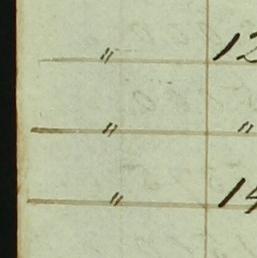 " 12
" "
" 14